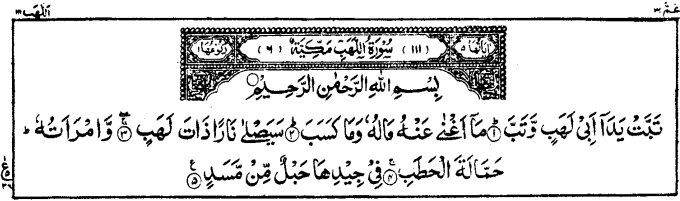 عَمَّ ٣٠ اللَّهَب ١١١
اٰيَاتُهَا ٥ (١١١) سُوْرَةُ اللَّهَبِ مَكِّيَّةٌ (٦) رُكُوْعُهَا ١
بِسْمِ اللهِ الرَّحْمٰنِ الرَّحِيْمِ
تَبَّتْ يَدَآ اَبِيْ لَهَبٍ وَّتَبَّ ۝١ مَآ اَغْنٰى عَنْهُ مَالُهٗ وَمَا كَسَبَ ۝٢ سَيَصْلٰى نَارًا ذَاتَ لَهَبٍ ۝٣ وَّامْرَاَتُهٗ ط
حَمَّالَةَ الْحَطَبِ ۝٤ فِيْ جِيْدِهَا حَبْلٌ مِّنْ مَّسَدٍ ۝٥